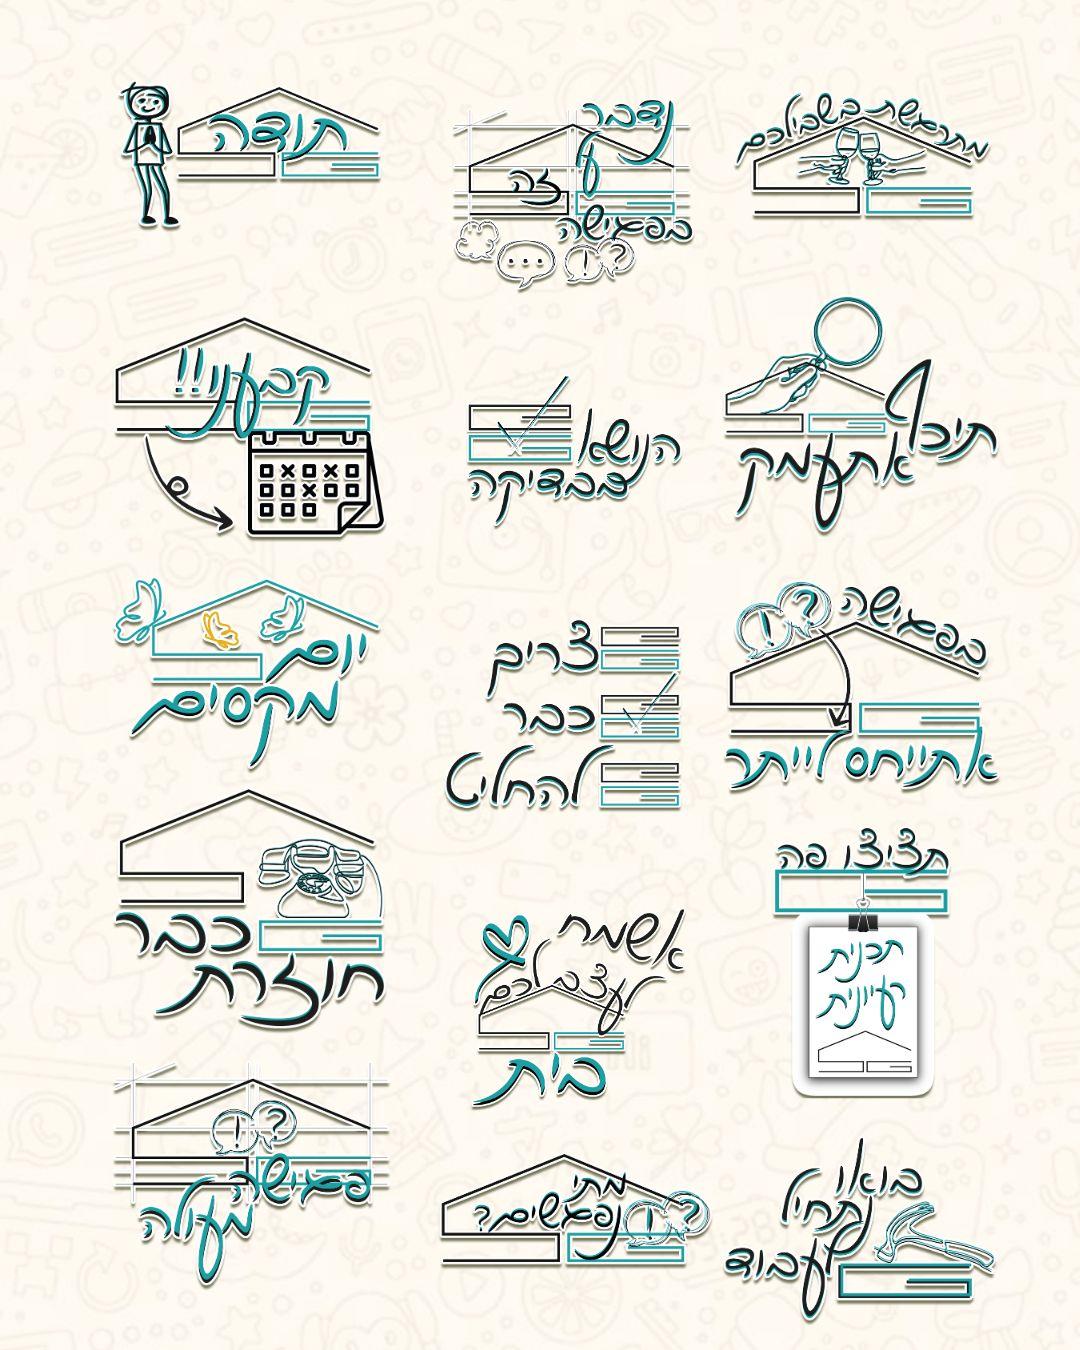 תודה
נדבר
על
זה
בפגישה
מתרגשת בשבילכם
קבעני!!
הנושא
בבדיקה
תיכף
אתעמק
יום
מקסים
צריך
כבר
להחליט
בפגישה
אתייחס לייתר
כבר
חוזרת
אשמח
לעצב לכם
בית
תציצו פה
תכנית
רעיונית
פגישה
מעולה
מתי
נפגשים?
בואו
נתחיל
לעבוד